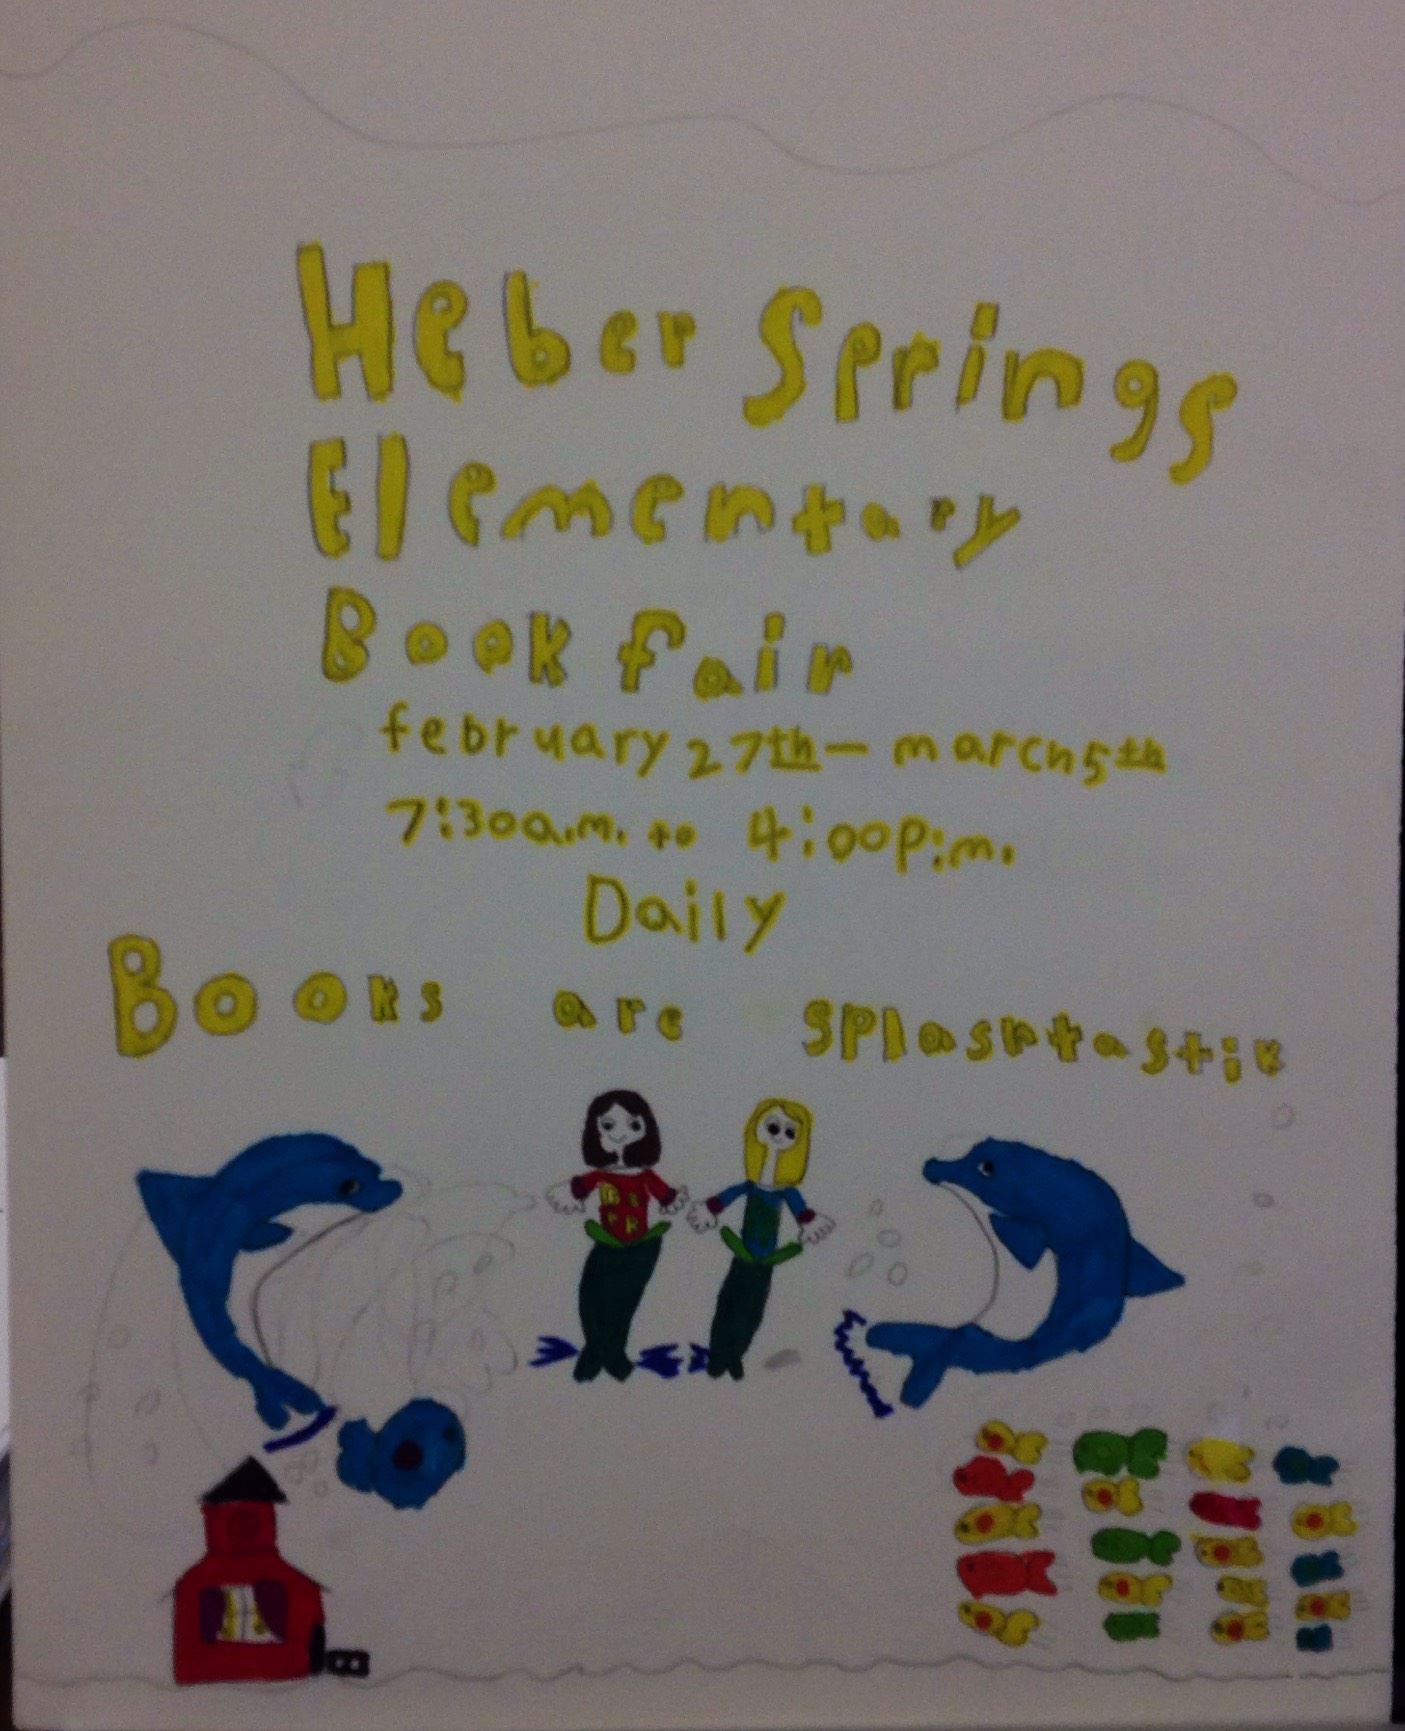 Heber Springs
Elementary
Book fair
february 27th - march 5th
7:30a.m. to 4:00p.m.
Daily
Books are splashtastik